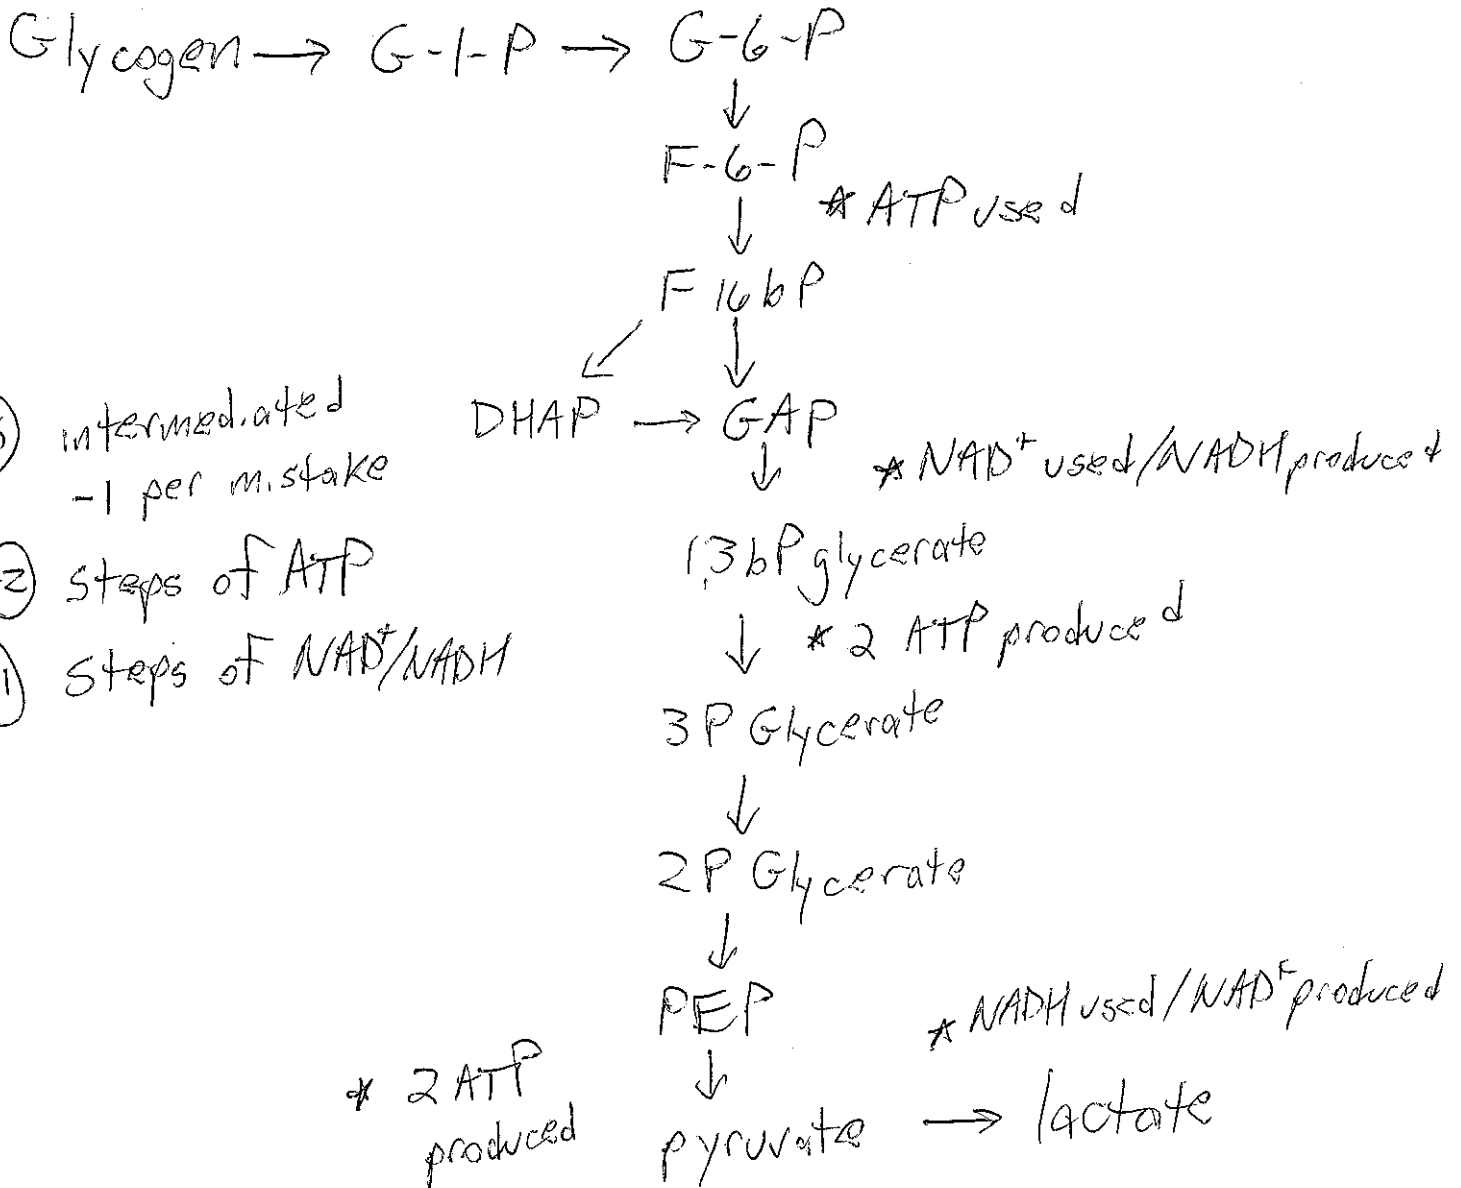 Glycogen → G-1-P → G-6-P
↓
F-6-P
* ATP used
↓
F 16 bP
↙ ↓
DHAP → GAP
* NAD⁺ used/NADH produced
↓
1,3 bP glycerate
↓ * 2 ATP produced
3P Glycerate
↓
2P Glycerate
↓
PEP
↓
* 2 ATP
produced
pyruvate → lactate
* NADH used/NAD⁺ produced
intermediated
-1 per mistake
2) steps of ATP
1) steps of NAD⁺/NADH